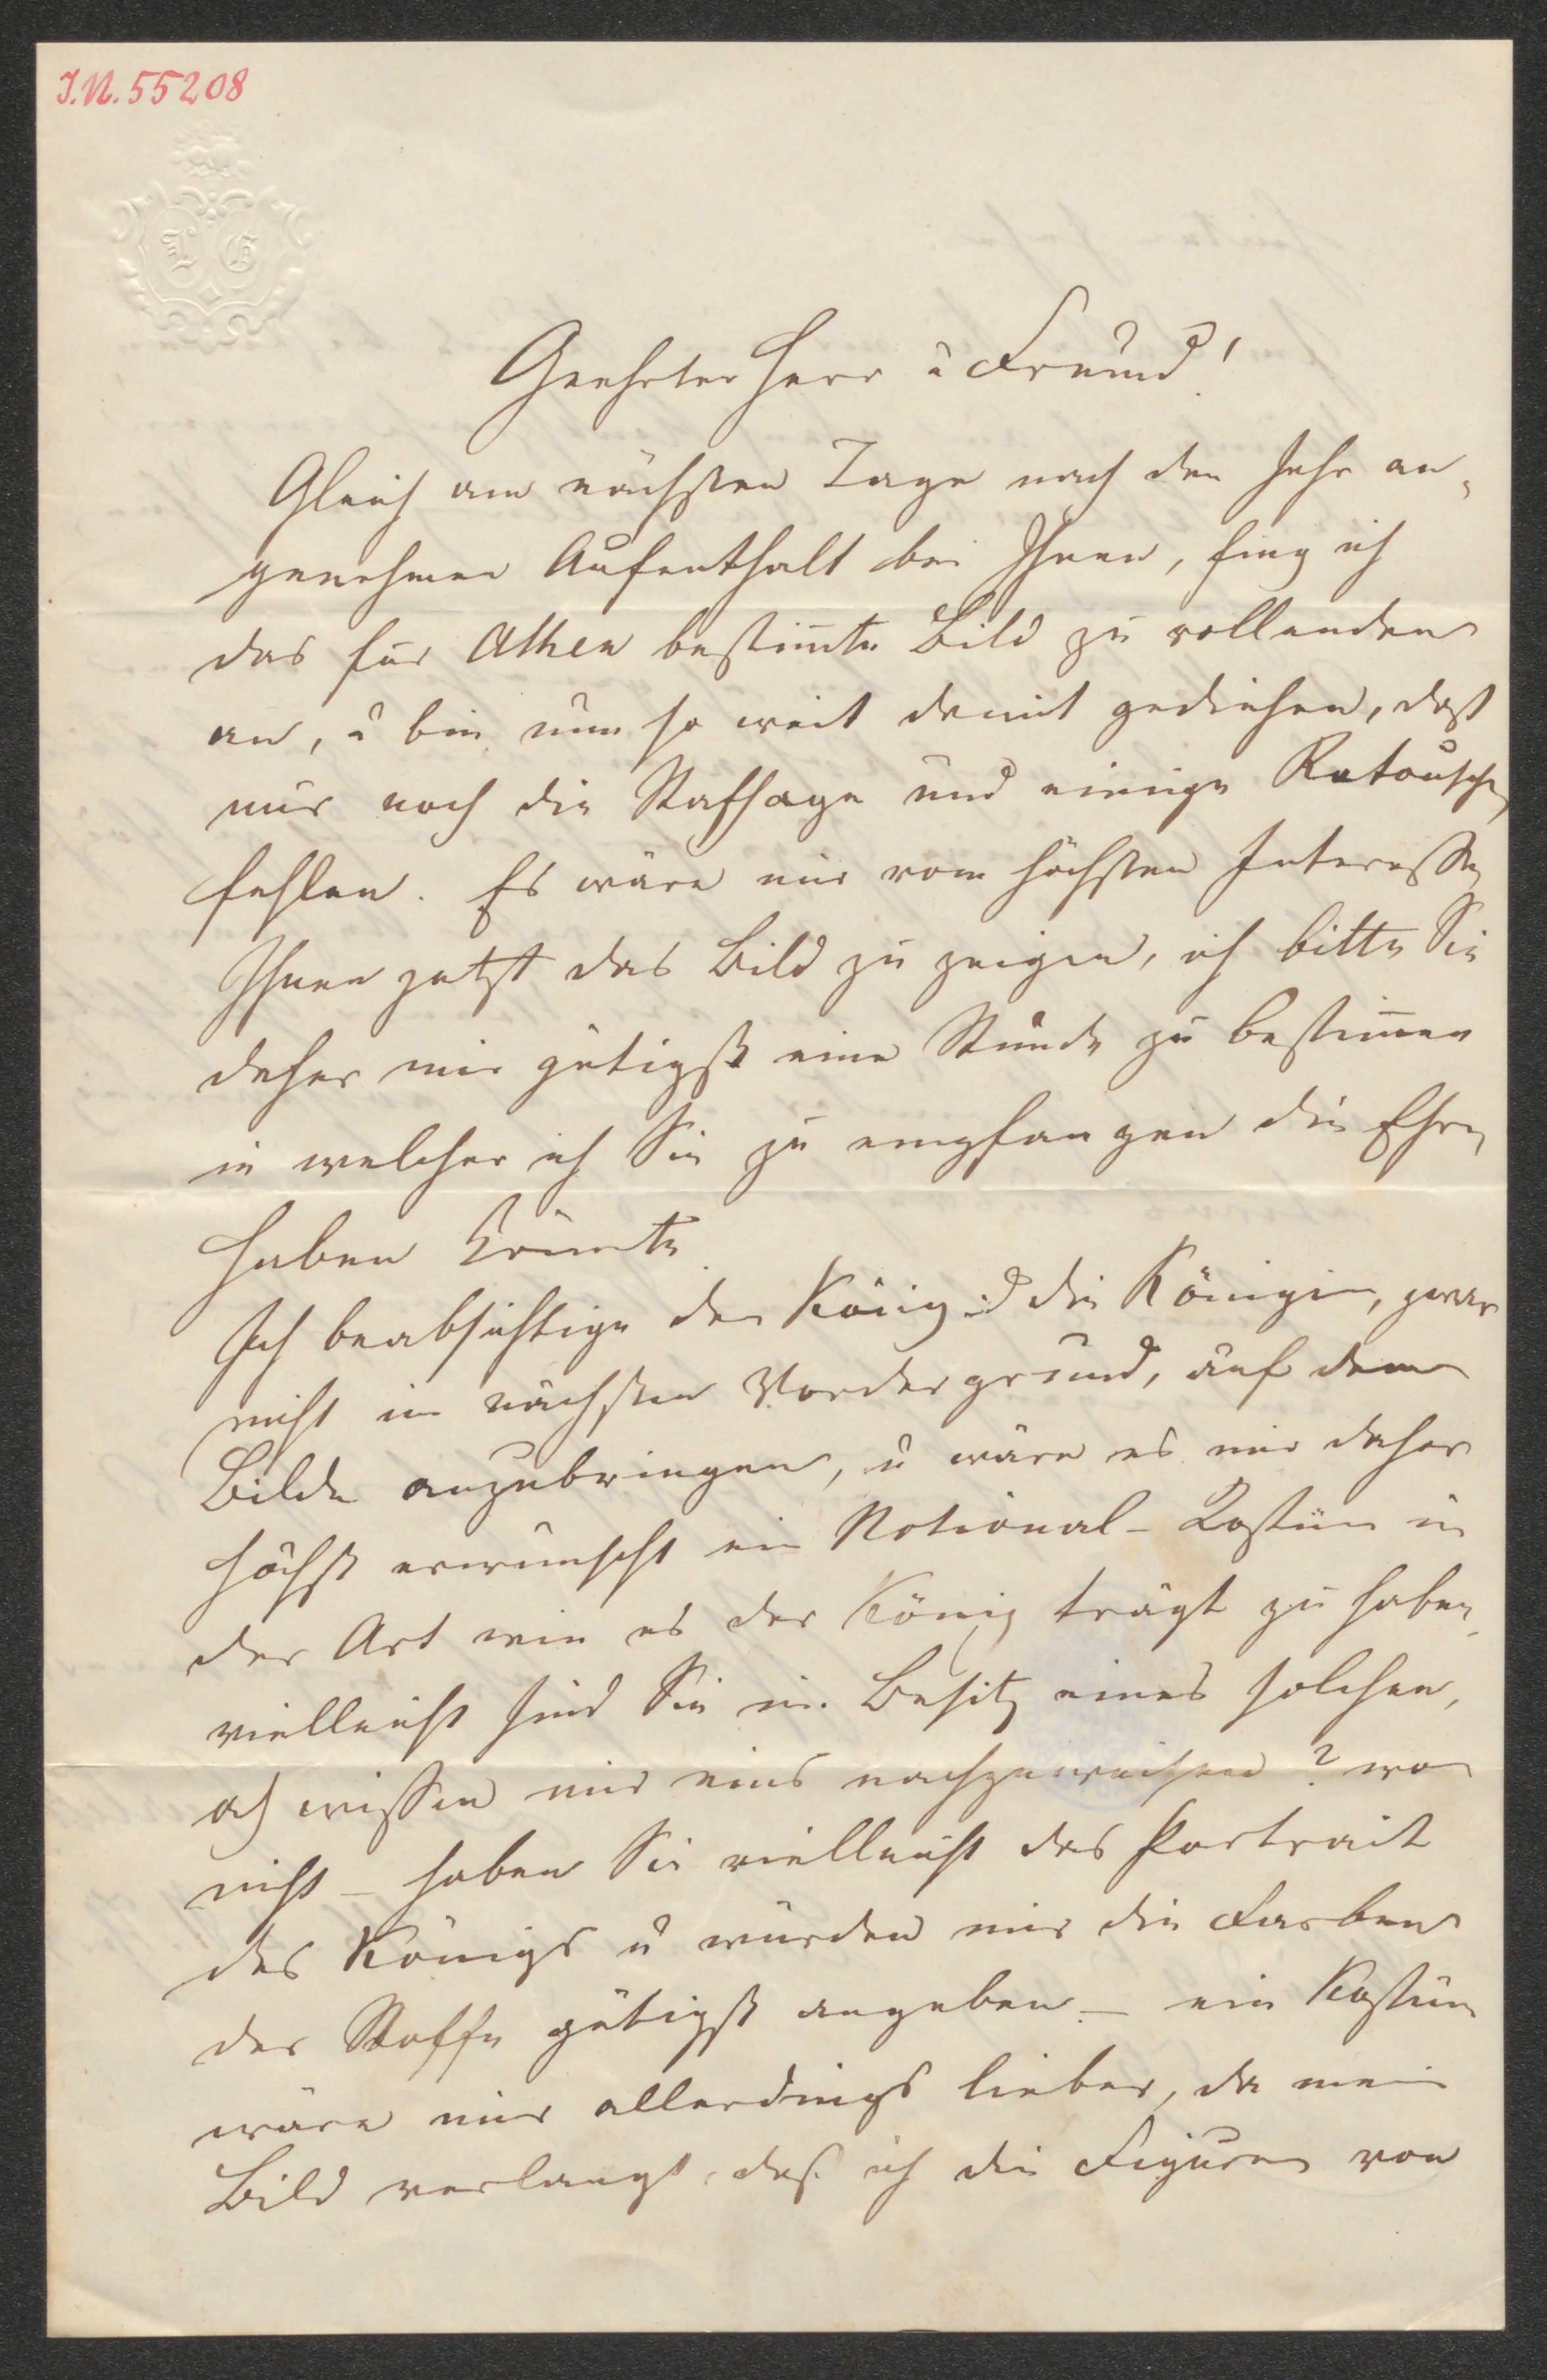 J.N. 55208
L G
Geehrter Herr u Freund!
Gleich am nächsten Tage nach den sehr an-
genehmen Aufenthalt bei Ihnen, fing ich
das für Athen bestim̅te Bild zu vollenden
an, u bin nun so weit damit gediehen, daß
nur noch die Staffage und einige Retouschen
fehlen. Es wäre mir vom höchsten Interesse
Ihnen jetzt das Bild zu zeigen, ich bitte Sie
daher mir gütigst eine Stunde zu bestim̅en
in welcher ich Sie zu empfangen die Ehre
haben könnte.
Ich beabsichtige den König u d die Königin, zwar
nicht im nächsten Vordergrund, auf dem
Bilde anzubringen, u wäre es mir daher
höchst erwünscht ein National-Kostüm in
der Art wie es der König trägt zu haben,
vielleicht sind Sie im Besitz eines solchen,
od wissen mir eins nachzuweisen? wo
nicht – haben Sie vielleicht das Portrait
des Königs u würden mir die Farben
der Stoffe gütigst angeben – ein Kostüm
wäre mir allerdings lieber, da mein
Bild verlangt, daß ich die Figuren von